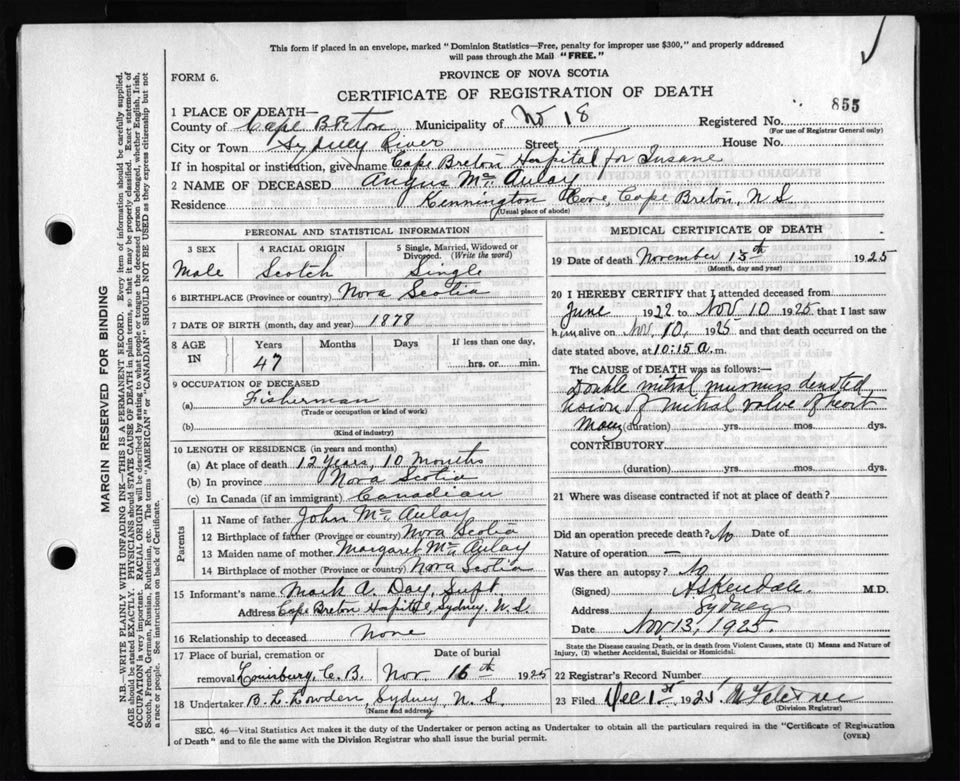 This form if placed in an envelope, marked "Dominion Statistics—Free, penalty for improper use $300," and properly addressed
will pass through the Mail "FREE."
FORM 6.
PROVINCE OF NOVA SCOTIA
CERTIFICATE OF REGISTRATION OF DEATH
855
1 PLACE OF DEATH—
County of Cape Breton Municipality of No 18 Registered No.
(For use of Registrar General only)
City or Town Sydney River Street House No.
If in hospital or institution, give name Cape Breton Hospital for Insane
2 NAME OF DECEASED Angus McAulay
Residence Kennington Cove, Cape Breton, N S.
(Usual place of abode)
PERSONAL AND STATISTICAL INFORMATION
3 SEX 4 RACIAL ORIGIN 5 Single, Married, Widowed or
Divorced. (Write the word)
Male Scotch Single
6 BIRTHPLACE (Province or country) Nova Scotia
7 DATE OF BIRTH (month, day and year) 1878
8 AGE IN Years Months Days If less than one day,
47 hrs. or min.
9 OCCUPATION OF DECEASED
(a) Fisherman
(Trade or occupation or kind of work)
(b)
(Kind of industry)
10 LENGTH OF RESIDENCE (in years and months)
(a) At place of death 12 Years, 10 months
(b) In province Nova Scotia
(c) In Canada (if an immigrant) Canadian
Parents
11 Name of father John McAulay
12 Birthplace of father (Province or country) Nova Scotia
13 Maiden name of mother Margaret McAulay
14 Birthplace of mother (Province or country) Nova Scotia
15 Informant's name Mark A. Day, Supt.
Address Cape Breton Hospital, Sydney, N. S.
16 Relationship to deceased None
17 Place of burial, cremation or Date of burial
removal Louisburg, C. B. Nov. 16th 1925
18 Undertaker B. L. Lowden, Sydney, N. S.
(Name and address)
MEDICAL CERTIFICATE OF DEATH
19 Date of death November 13th 1925
(Month, day and year)
20 I HEREBY CERTIFY that I attended deceased from
June 1922 to Nov 10 1925 that I last saw
him alive on Nov. 10, 1925 and that death occurred on
date stated above, at 10:15 a.m.
The CAUSE of DEATH was as follows:—
Double mitral murmurs denoted
lesion of mitral valve of heart
Many (duration) yrs. mos. dys.
CONTRIBUTORY
(duration) yrs. mos. dys.
21 Where was disease contracted if not at place of death?
Did an operation precede death? No Date of
Nature of operation —
Was there an autopsy? No
(Signed) A S Kendall. M.D.
Address Sydney
Date Nov. 13, 1925.
State the Disease causing Death, or in death from Violent Causes, state (1) Means and Nature of
Injury, (2) whether Accidental, Suicidal or Homicidal.
22 Registrar's Record Number
23 Filed Dec 1st 1925
(Division Registrar)
SEC. 46—Vital Statistics Act makes it the duty of the Undertaker or person acting as Undertaker to obtain all the particulars required in the "Certificate of Registration
of Death" and to file the same with the Division Registrar who shall issue the burial permit.
(OVER)
MARGIN RESERVED FOR BINDING
N.B.—WRITE PLAINLY WITH UNFADING INK—THIS IS A PERMANENT RECORD. Every item of information should be carefully supplied.
AGE should be stated EXACTLY. PHYSICIANS should STATE CAUSE OF DEATH in plain terms, so that it may be properly classified. Exact statement of
OCCUPATION is very important. RACIAL ORIGIN will be described by stating to what people or tongue the deceased person belonged, whether English, Irish,
Scotch, French, German, Russian, Ruthenian, etc. The terms "AMERICAN" or "CANADIAN" SHOULD NOT BE USED as they express citizenship but not
a race or people. See instructions on back of Certificate.